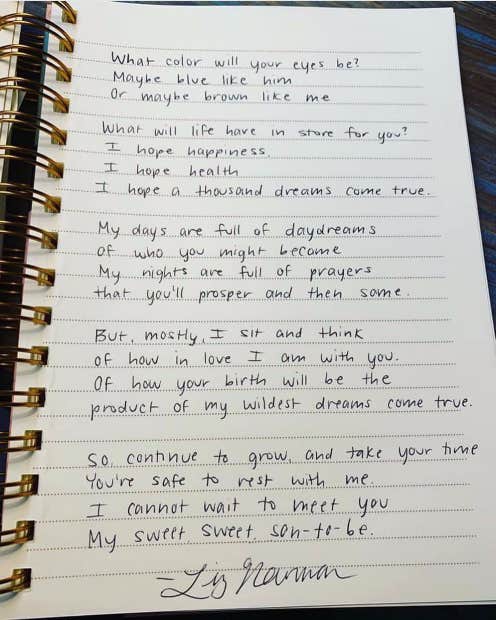 What color will your eyes be?
Maybe blue like him
Or maybe brown like me
What will life have in store for you?
I hope happiness.
I hope health
I hope a thousand dreams come true.
My days are full of daydreams
Of who you might become
My nights are full of prayers
that you'll prosper and then some.
But, mostly, I sit and think
of how in love I am with you.
Of how your birth will be the
product of my wildest dreams come true.
So, continue to grow, and take your time
You're safe to rest with me.
I cannot wait to meet you
My sweet, sweet, son-to-be.
- Liz Newman